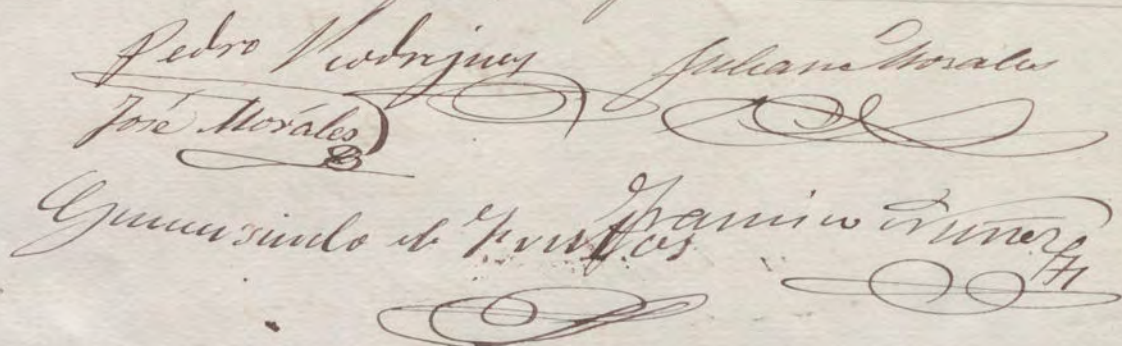 Pedro Rodriguez Julian Morales
José Morales
Gumersindo de Frutos Francisco Nuñez